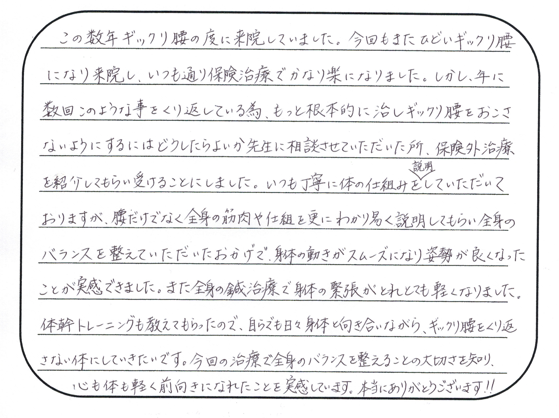 この数年ギックリ腰の度に来院していました。今回もまたひどいギックリ腰
になり来院し、いつも通り保険治療でかなり楽になりました。しかし、年に
数回このような事をくり返している為、もっと根本的に治しギックリ腰をおこさ
ないようにするにはどうしたらよいか先生に相談させていただいた所、保険外治療
を紹介してもらい受けることにしました。いつも丁寧に体の仕組みを説明していただいて
おりますが、腰だけでなく全身の筋肉や仕組を更にわかり易く説明してもらい全身の
バランスを整えていただいたおかげで、身体の動きがスムーズになり姿勢が良くなった
ことが実感できました。また全身の鍼治療で身体の緊張がとれとても軽くなりました。
体幹トレーニングも教えてもらったので、自らでも日々身体と向き合いながら、ギックリ腰をくり返
さない体にしていきたいです。今回の治療で全身のバランスを整えることの大切さを知り、
心も体も軽く前向きになれたことを実感しています。本当にありがとうございます!!